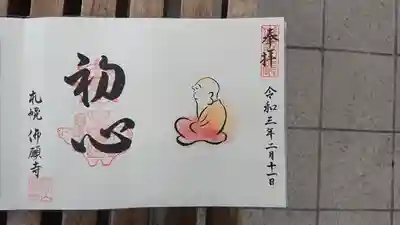 奉拝
令和三年二月十一日
初心
札幌 佛願寺